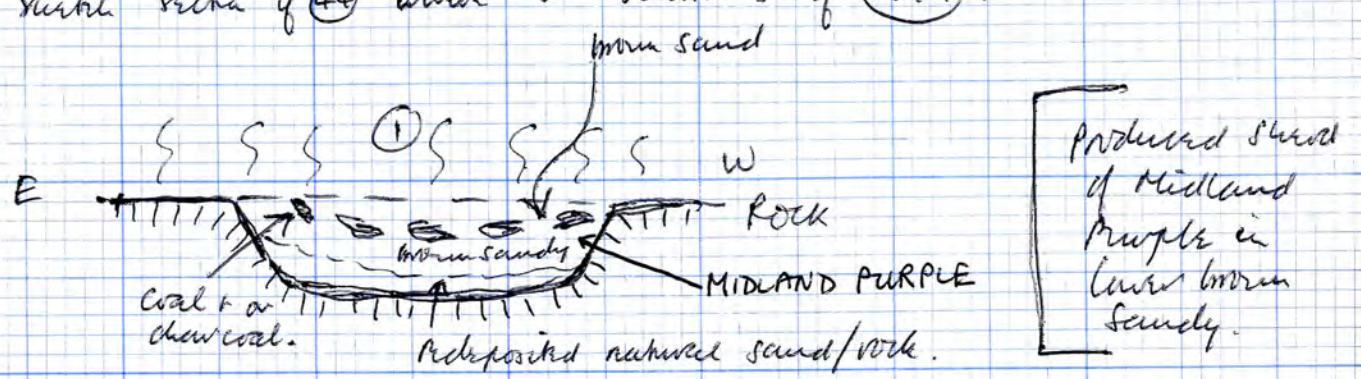 Sketch section of (44) which is of
brown sand
①
E
W
ROCK
brown sandy
MIDLAND PURPLE
Coal + or
charcoal.
Redeposited natural sand/rock.
Produced sherd
of Midland
Purple in
lower brown
Sandy.